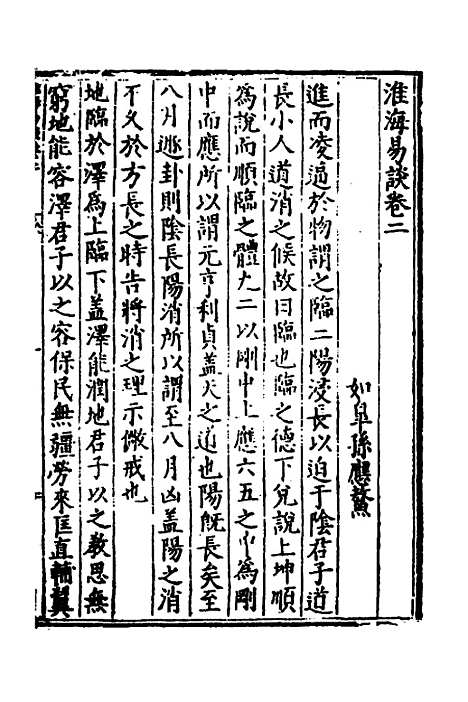 淮海易談卷二
如皋孫應鰲
進而凌逼於物謂之臨二陽浸長以迫于陰君子道
長小人道消之候故曰臨也臨之德下兌說上坤順
為說而順臨之體九二以剛中上應六五之中為剛
中而應所以謂元亨利貞蓋天之道也陽既長矣至
八月遯卦則陰長陽消所以謂至八月凶蓋陽之消
不久於方長之時告將消之理示儆戒也
地臨於澤為上臨下蓋澤能潤地君子以之教思無
窮地能容澤君子以之容保民無疆勞來匡直輔翼